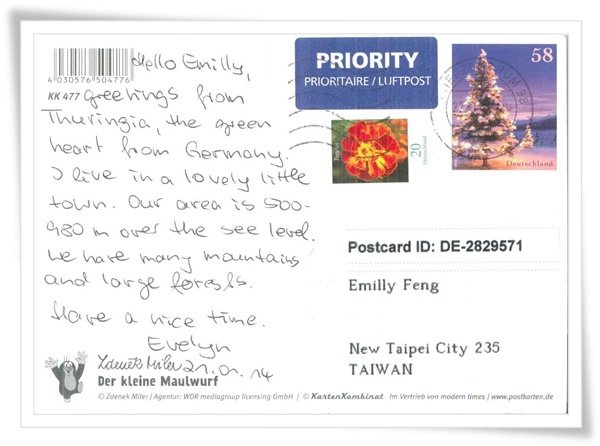 4030576504776
KK 477
Hello Emilly,
Greetings from
Thuringia, the green
heart from Germany.
I live in a lovely little
town. Our area is 500-
980 m over the see level.
We have many mountains
and large forests.
Have a nice time.
Evelyn
21.01.14
Zdenek Miler
Der kleine Maulwurf
© Zdenek Miler | Agentur: WDR mediagroup licensing GmbH | © KartenKombinat Im Vertrieb von modern times | www.postkarten.de
PRIORITY
PRIORITAIRE / LUFTPOST
58
Deutschland
20
Deutschland
Postcard ID: DE-2829571
Emilly Feng
New Taipei City 235
TAIWAN